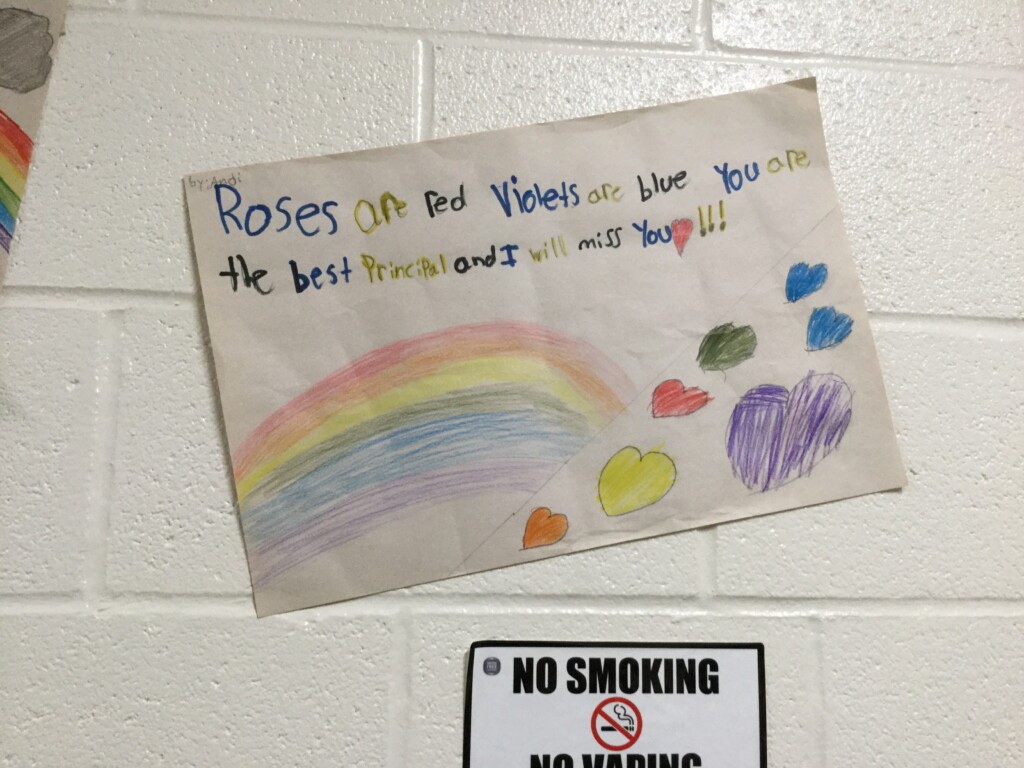 by: Andi
Roses are red Violets are blue You are
the best Principal and I will miss You !!!
NO SMOKING
NO VAPING